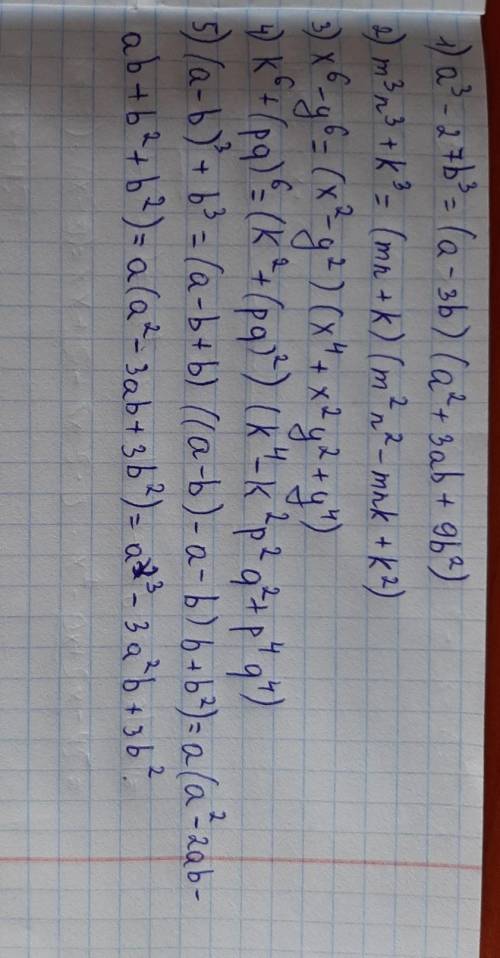 1) a³ - 27b³ = (a - 3b) (a² + 3ab + 9b²)
2) m³n³ + k³ = (mn + k) (m²n² - mnk + k²)
3) x⁶ - y⁶ = (x² - y²) (x⁴ + x²y² + y⁴)
4) k⁶ + (pq)⁶ = (k² + (pq)²) (k⁴ - k²p²q² + p⁴q⁴)
5) (a - b)³ + b³ = (a - b + b) ((a - b) - a - b) b + b²) = a (a² - 2ab -
ab + b² + b²) = a (a² - 3ab + 3b²) = a³ - 3a²b + 3b².